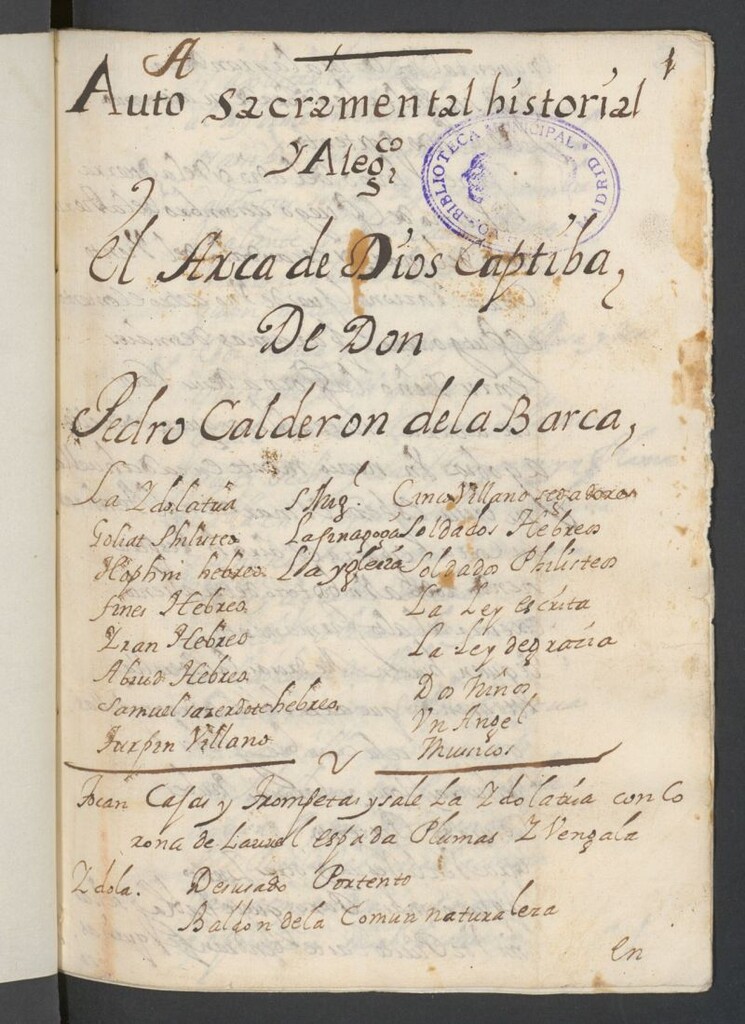 A
1
Auto Sacramental historial
y Aleg.co
El Arca de Dios Captiba,
De Don
Pedro Calderon dela Barca,
BIBLIOTECA MUNICIPAL MADRID
La Idolatria
Goliat Philisteo
Hophni hebreo
fines Hebreo
Iran Hebreo
Abiud Hebreo
Samuel sazerdote hebreo
Turpin Villano
La sinagoga
La yglesia
Cinco Villano segadores
Soldados Hebreos
Soldados Philisteos
La Ley escrita
La Ley de grazia
Dos Niños
Vn Angel
Musicos
Tocan Cajas y Trompetas y sale La Idolatria con Co
rona de Laurel espada Plumas I Vengala
Idola. Desusado Portento
Baldon dela Comun naturaleza
en